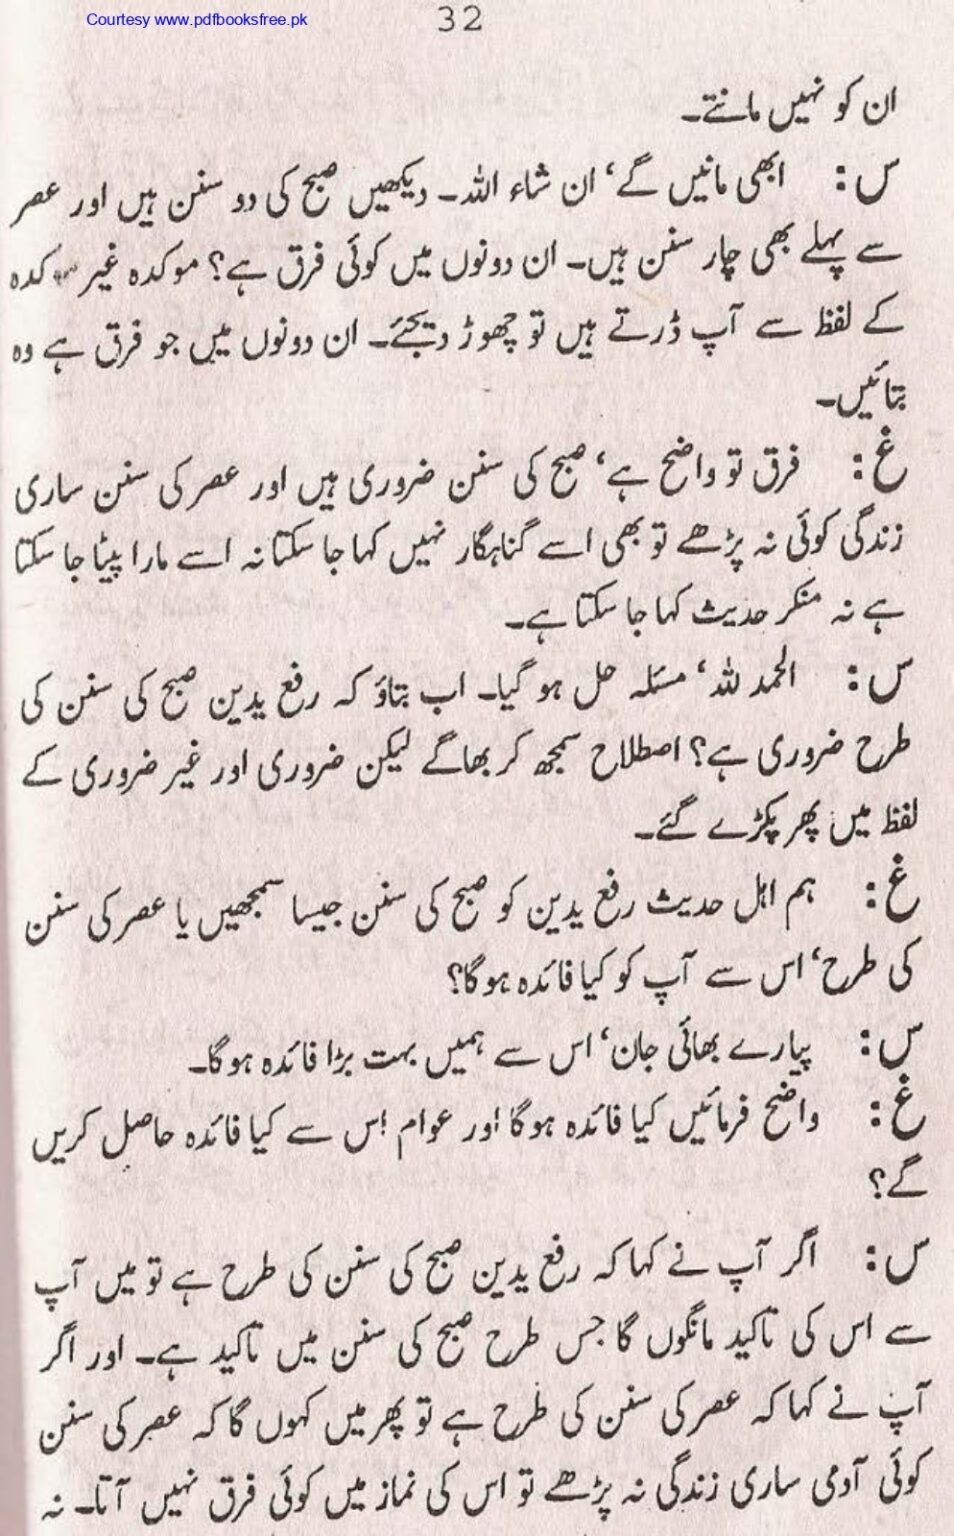 Courtesy www.pdfbooksfree.pk
32
ان کو نہیں مانتے۔
س: ابھی مانیں گے، ان شاء اللہ۔ دیکھیں صبح کی دو سنن ہیں اور عصر
سے پہلے بھی چار سنن ہیں۔ ان دونوں میں کوئی فرق ہے؟ موکدہ غیر موکدہ
کے لفظ سے آپ ڈرتے ہیں تو چھوڑ دیجئے۔ ان دونوں میں جو فرق ہے وہ
بتائیں۔
غ: فرق تو واضح ہے، صبح کی سنن ضروری ہیں اور عصر کی سنن ساری
زندگی کوئی نہ پڑھے تو بھی اسے گناہگار نہیں کہا جا سکتا نہ اسے مارا پیٹا جا سکتا
ہے نہ منکر حدیث کہا جا سکتا ہے۔
س: الحمد للہ، مسئلہ حل ہو گیا۔ اب بتاؤ کہ رفع یدین صبح کی سنن کی
طرح ضروری ہے؟ اصطلاح سمجھ کر بھاگے لیکن ضروری اور غیر ضروری کے
لفظ میں پھر پکڑے گئے۔
غ: ہم اہل حدیث رفع یدین کو صبح کی سنن جیسا سمجھیں یا عصر کی سنن
کی طرح، اس سے آپ کو کیا فائدہ ہوگا؟
س: پیارے بھائی جان، اس سے ہمیں بہت بڑا فائدہ ہوگا۔
غ: واضح فرمائیں کیا فائدہ ہوگا اور عوام اس سے کیا فائدہ حاصل کریں
گے؟
س: اگر آپ نے کہا کہ رفع یدین صبح کی سنن کی طرح ہے تو میں آپ
سے اس کی تاکید مانگوں گا جس طرح صبح کی سنن میں تاکید ہے۔ اور اگر
آپ نے کہا کہ عصر کی سنن کی طرح ہے تو پھر میں کہوں گا کہ عصر کی سنن
کوئی آدمی ساری زندگی نہ پڑھے تو اس کی نماز میں کوئی فرق نہیں آتا۔ نہ